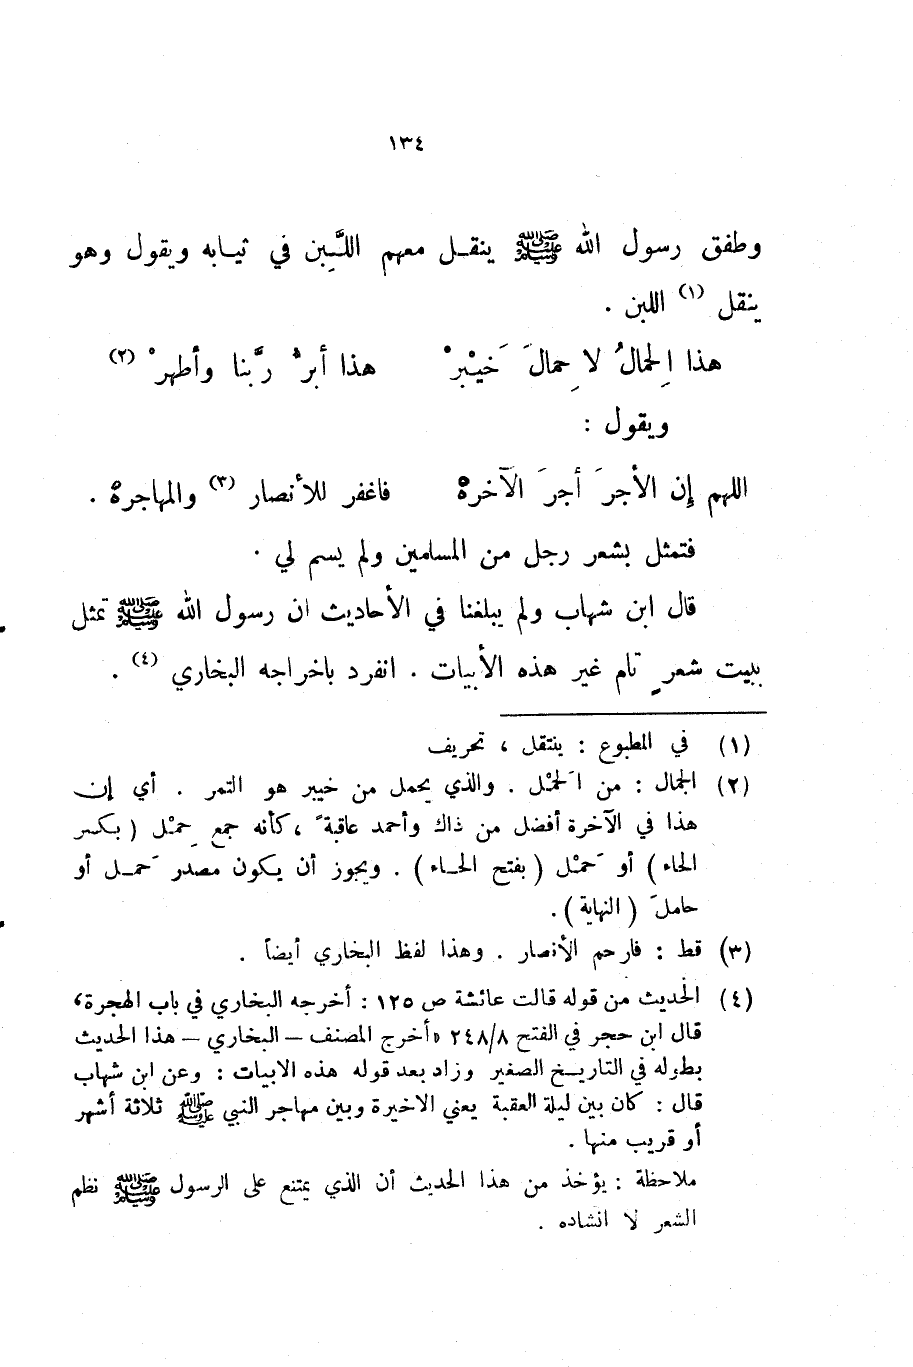 ١٣٤
وطفق رسول الله ﷺ ينقـل معهم اللَّبِن في ثيـابه ويقول وهو
ينقل (١) اللبن .
هذا الِحمالُ لا حِمالَ خَيْبرْ هذا أبرُّ ربَّنا وأطهرْ (٢)
ويقول :
اللهم إِن الأجرَ أجرَ الآخرهْ فاغفر للأنصار (٣) والمهاجرهْ .
فتمثل بشعر رجل من المسلمين ولم يسم لي .
قال ابن شهاب ولم يبلغنا في الأحاديث ان رسول الله ﷺ تمثل
ببيت شعرٍ تام غير هذه الأبيات . انفرد باخراجه البخاري (٤) .
(١) في المطبوع : ينتقل ، تحريف
(٢) الحمال : من الحَمْل . والذي يحمل من خيبر هو التمر . أي إن
هذا في الآخرة أفضل من ذاك وأحمد عاقبةً ، كأنه جمع حِمْل ( بكسر
الحاء ) أو حَمْل ( بفتح الحـاء ) . ويجوز أن يكون مصدر حَمـل أو
حاملَ ( النهاية ) .
(٣) قط : فارحم الأنصار . وهذا لفظ البخاري أيضاً .
(٤) الحديث من قوله قالت عائشة ص ١٢٥ : أخرجه البخاري في باب الهجرة ،
قال ابن حجر في الفتح ٢٤٨/٨ «أخرج المصنف – البخاري – هذا الحديث
بطوله في التاريـخ الصغير وزاد بعد قوله هذه الابيات : وعن ابن شهاب
قال : كان بين ليلة العقبة يعني الاخيرة وبين مهاجر النبي ﷺ ثلاثة أشهر
أو قريب منها .
ملاحظة : يؤخذ من هذا الحديث أن الذي يمتنع على الرسول ﷺ نظم
الشعر لا انشاده .